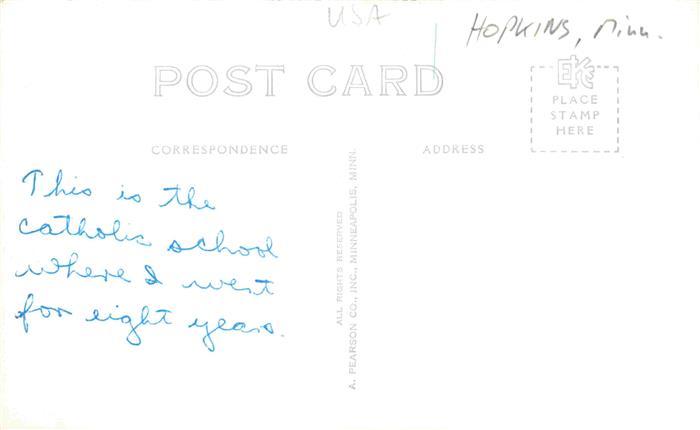 USA
HOPKINS, Minn.
POST CARD
EKC
PLACE
STAMP
HERE
CORRESPONDENCE
ADDRESS
This is the
catholic school
where I went
for eight years.
ALL RIGHTS RESERVED
A. PEARSON CO., INC., MINNEAPOLIS, MINN.